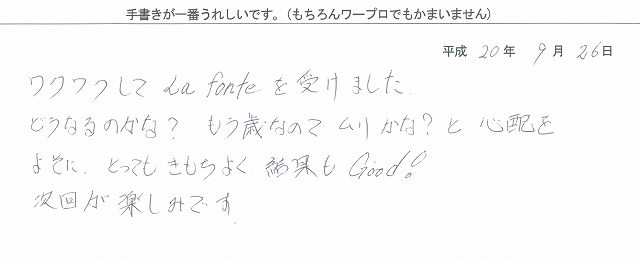 手書きが一番うれしいです。（もちろんワープロでもかまいません）
平成 20 年 9 月 26 日
ワクワクして La fonte を受けました
どうなるのかな？ もう歳なので ムリかな？と 心配を
よそに、とっても きもちよく 結果も Good！
次回が 楽しみです